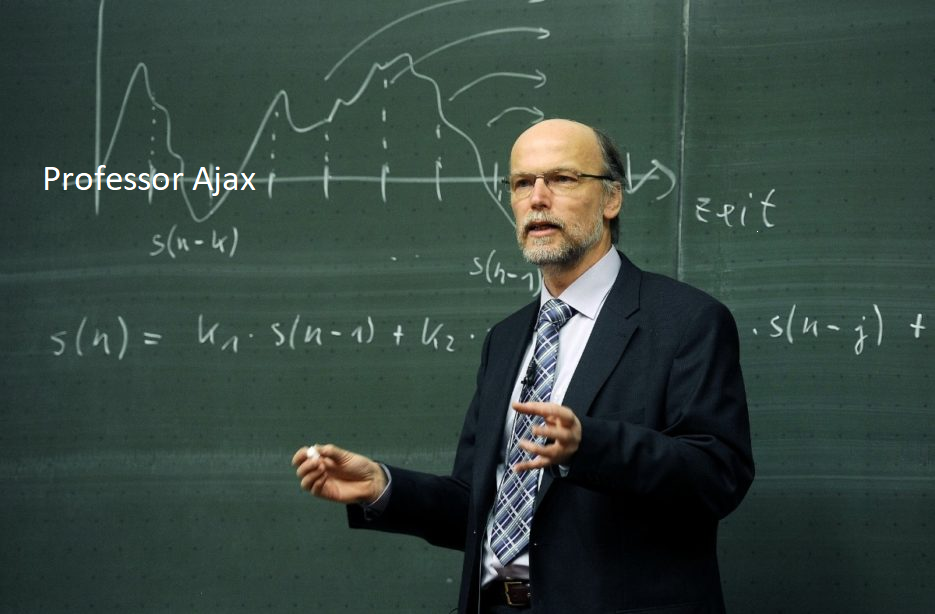 Professor Ajax
Zeit
s(n-k)
s(n-1)
s(n) = k₁· s(n-1) + k₂ · · s(n-j) +